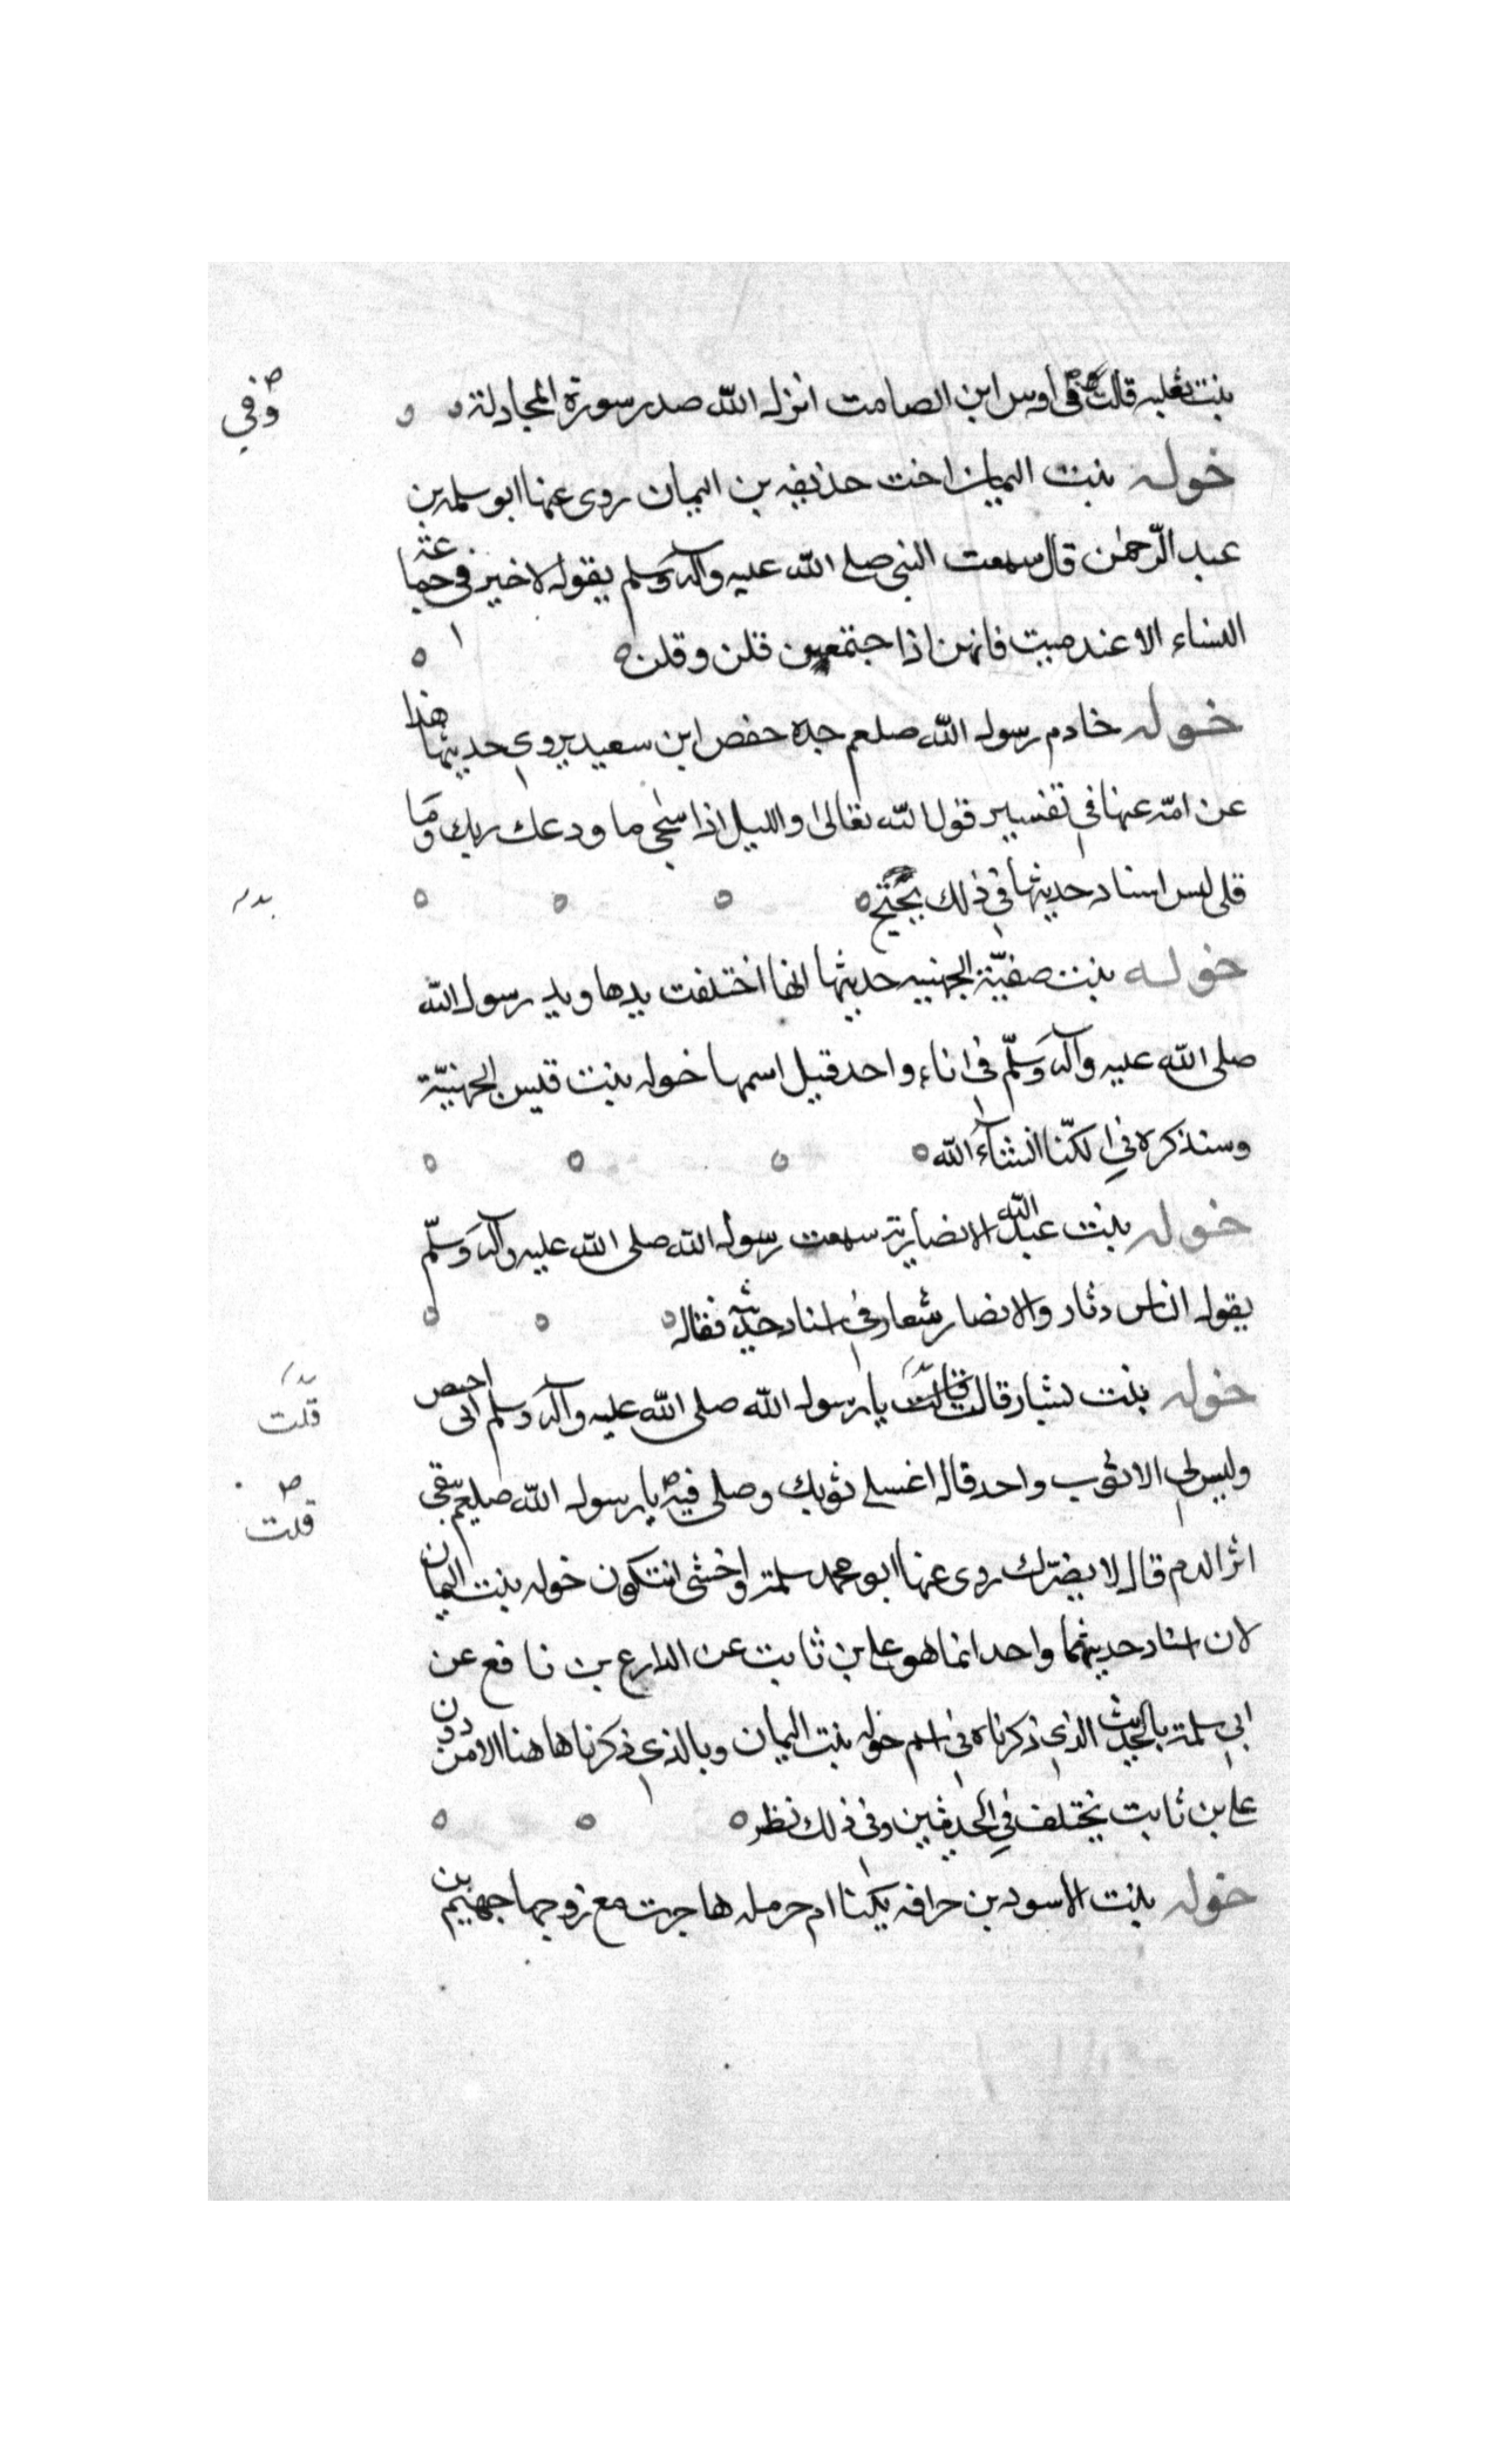 بنت ثعلبه قالت في أوس ابن الصامت انزل الله صدر سورة المجادلة
وفي
خوله بنت اليمان اخت حذيفه بن اليمان روى عنها ابو سلمه بن
عبد الرّحمٰن قال سمعت النبي صلى الله عليه وآله وسلم يقول لا خير في جماعة
النساء الا عند ميت فانهن اذا اجتمعن قلن وقلن
خوله خادم رسول الله صلعم جده حفص ابن سعيد يروى حديثها هذا
عن امّه عنها في تفسير قول الله تعالى والليل اذا سجى ما ودعك ربك وما
قلى ليس اسناد حديثها في ذلك يحتج
خوله بنت صفيّة الجهنيه حديثها انها اختلفت يدها ويد رسول الله
صلى الله عليه وآله وسلّم في اناء واحد قيل اسمها خوله بنت قيس الجهنيّة
وسنذكره في الكنّا انشآء الله
خوله بنت عبد الله الانصارية سمعت رسول الله صلى الله عليه وآله وسلّم
يقول الناس دثار والانصار شعار في اسناد حديثه فقال
خوله بنت بشار قالت قالت يا رسول الله صلى الله عليه وآله وسلم انى احيض
قلت
وليس لي الا ثوب واحد قال اغسلي ثوبك وصلي فيه يا رسول الله صلعم يبقى
قلت
اثر الدم قال لا يضرّك روى عنها ابو محمد سلمة واخشى انتكون خوله بنت اليمان
لان اسناد حديثهما واحد انما هو علي بن ثابت عن الدارع بن نافع عن
ابي سلمة بالحديث الذي ذكرناه في اسم خوله بنت اليمان وبالذي ذكرنا هاهنا الا من دون
علي بن ثابت يختلف في الحديثين وفي ذلك نظر
خوله بنت الاسود بن حرافه يكنا ام حرمله هاجرت مع زوجها جهيم بن